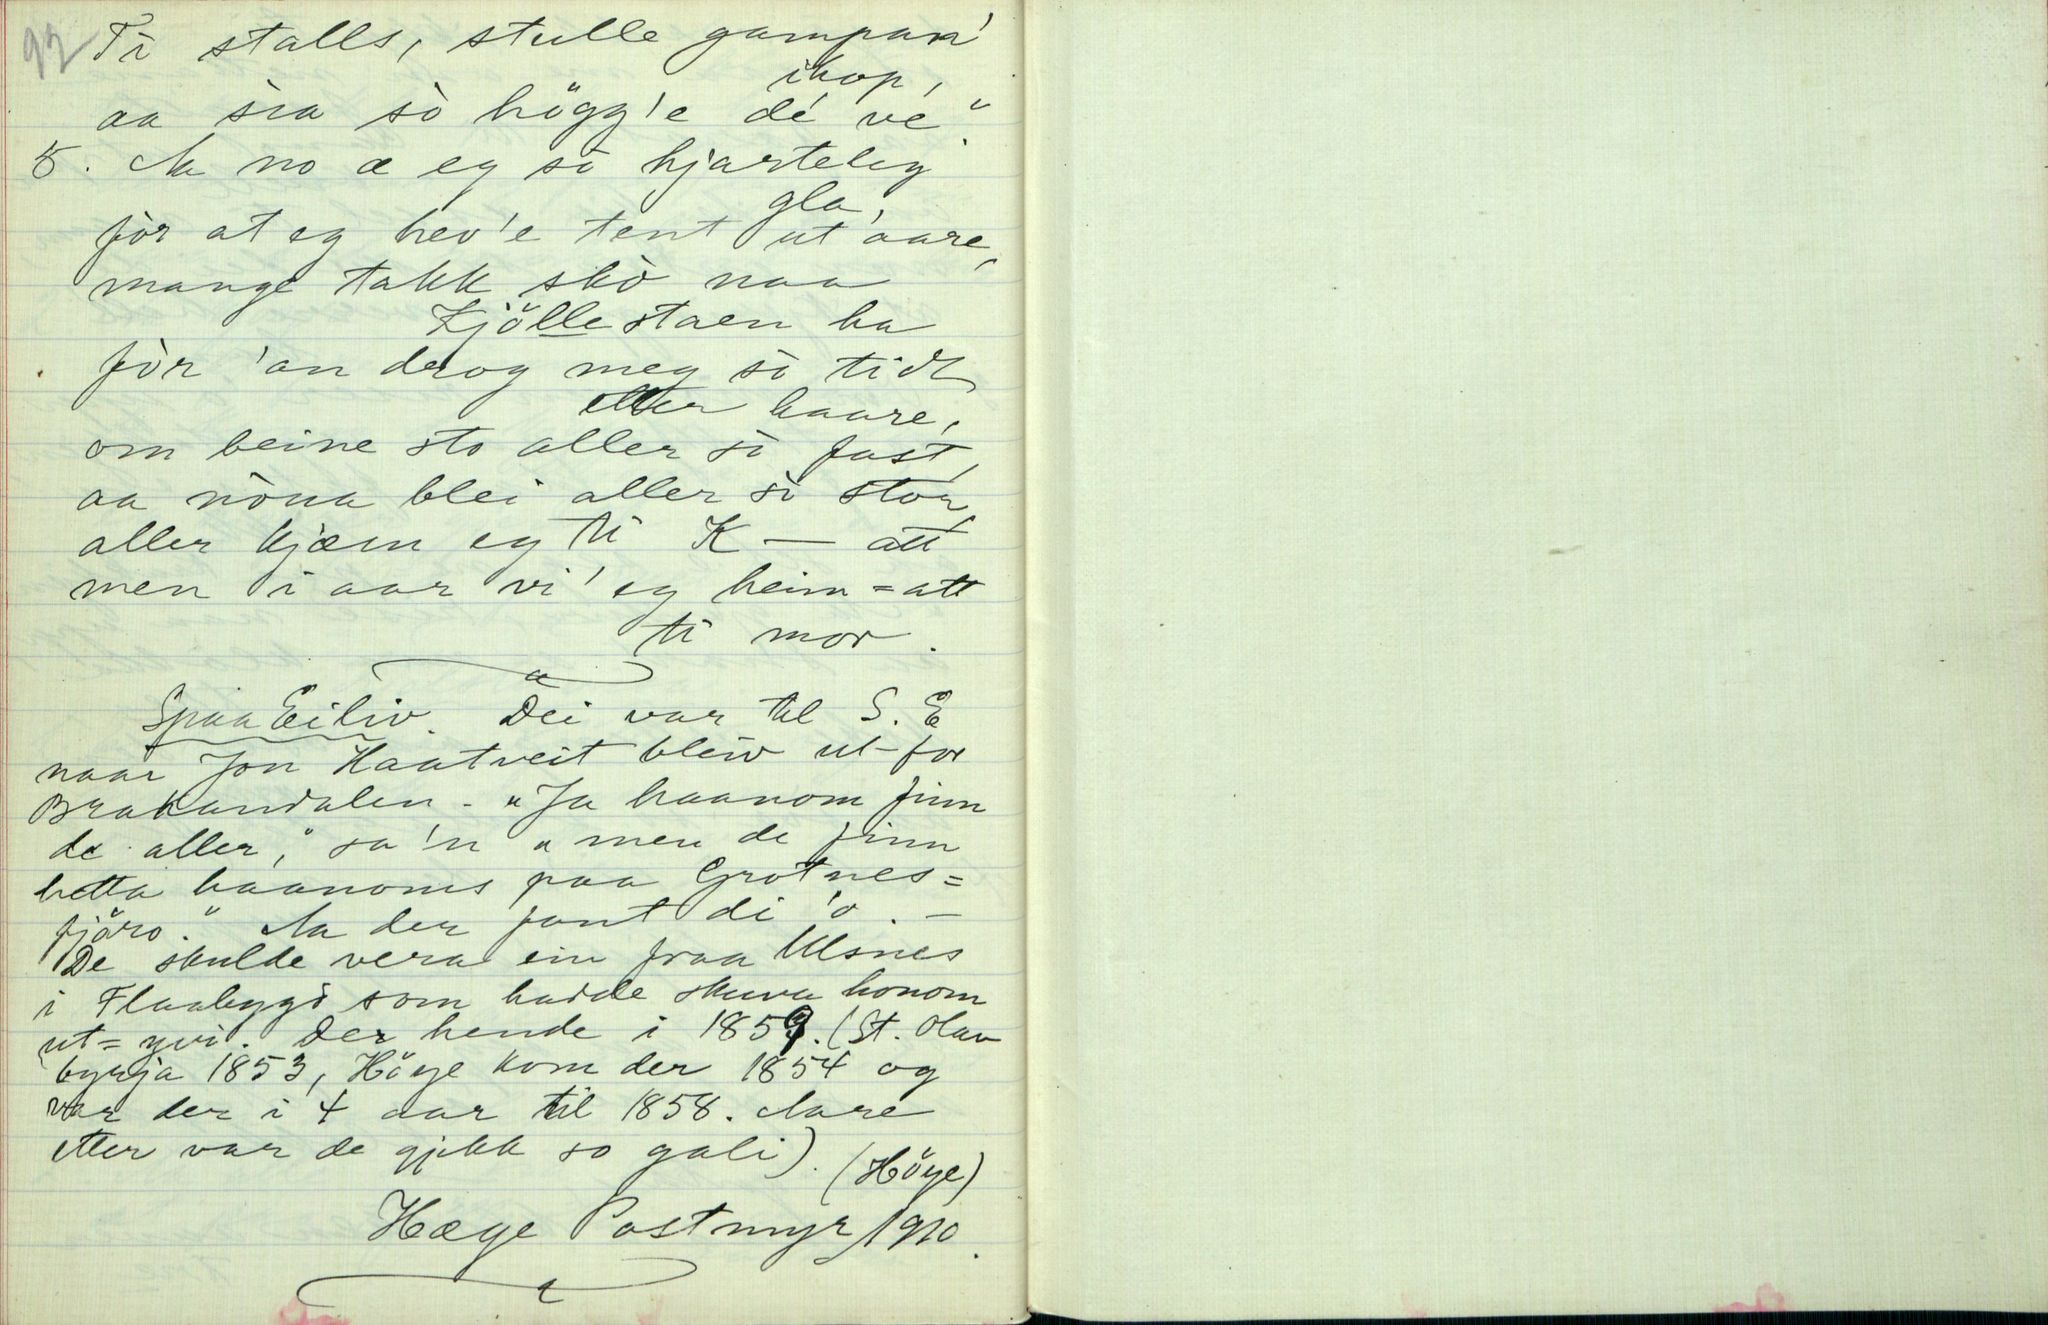 92
Ti stalls, stulle gampan'
ihop,
aa sia sò högg'e dé ve".
5. Aa no æ eg sò hjarteleg
gla,
fòr at eg hev'e tent ut aare,
mange takk skò naa
Kjöllestaen ha
fòr 'an drog meg sò tidt
etter haare,
om beine sto aller sò fast,
aa nòna blei aller sò stor,
aller kjæm eg ti K — att
men i aar vi' eg heim=att
ti mor.
Spaa Eiliv. Dei var til S. E
naar Jon Haatveit bleiv ut-for
Brakandalen - "Ja haanom finn
de aller," sa 'n "men de finn
hetta haanoms paa Grotnes=
fjöro." Aa der fant di 'o. —
De skulde vera ein fraa Ulsnes
i Flaabygd som hadde skuva honom
ut=yvi. Der hende i 1859. (St. Olav
byrja 1853, Höye kom der 1854 og
var der i 4 aar til 1858. Aare
etter var de gjikk so gali). (Höye)
Hæge Postmyr 1910.